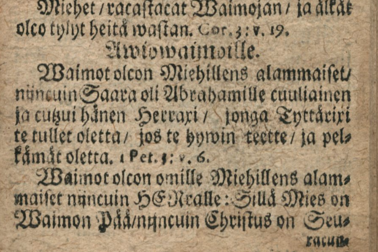 Miehet/racastacat Waimojan/ ja älkät
olco tylyt heitä wastan. Cor. 3: v. 19.
Awiowaimoille.
Waimot olcon Miehillens alammaiset/
nijncuin Saara oli Abrahamille cuuliainen
ja cuzui hänen Herraxi/ jonga Tyttärixi
te tullet oletta/ jos te hywin teette/ ja pel-
kämät oletta. 1 Pet. 3: v. 6.
Waimot olcon omille Miehillens alam-
maiset nijncuin HERralle: Sillä Mies on
Waimon Pää/nijncuin Christus on Seu-
racun-